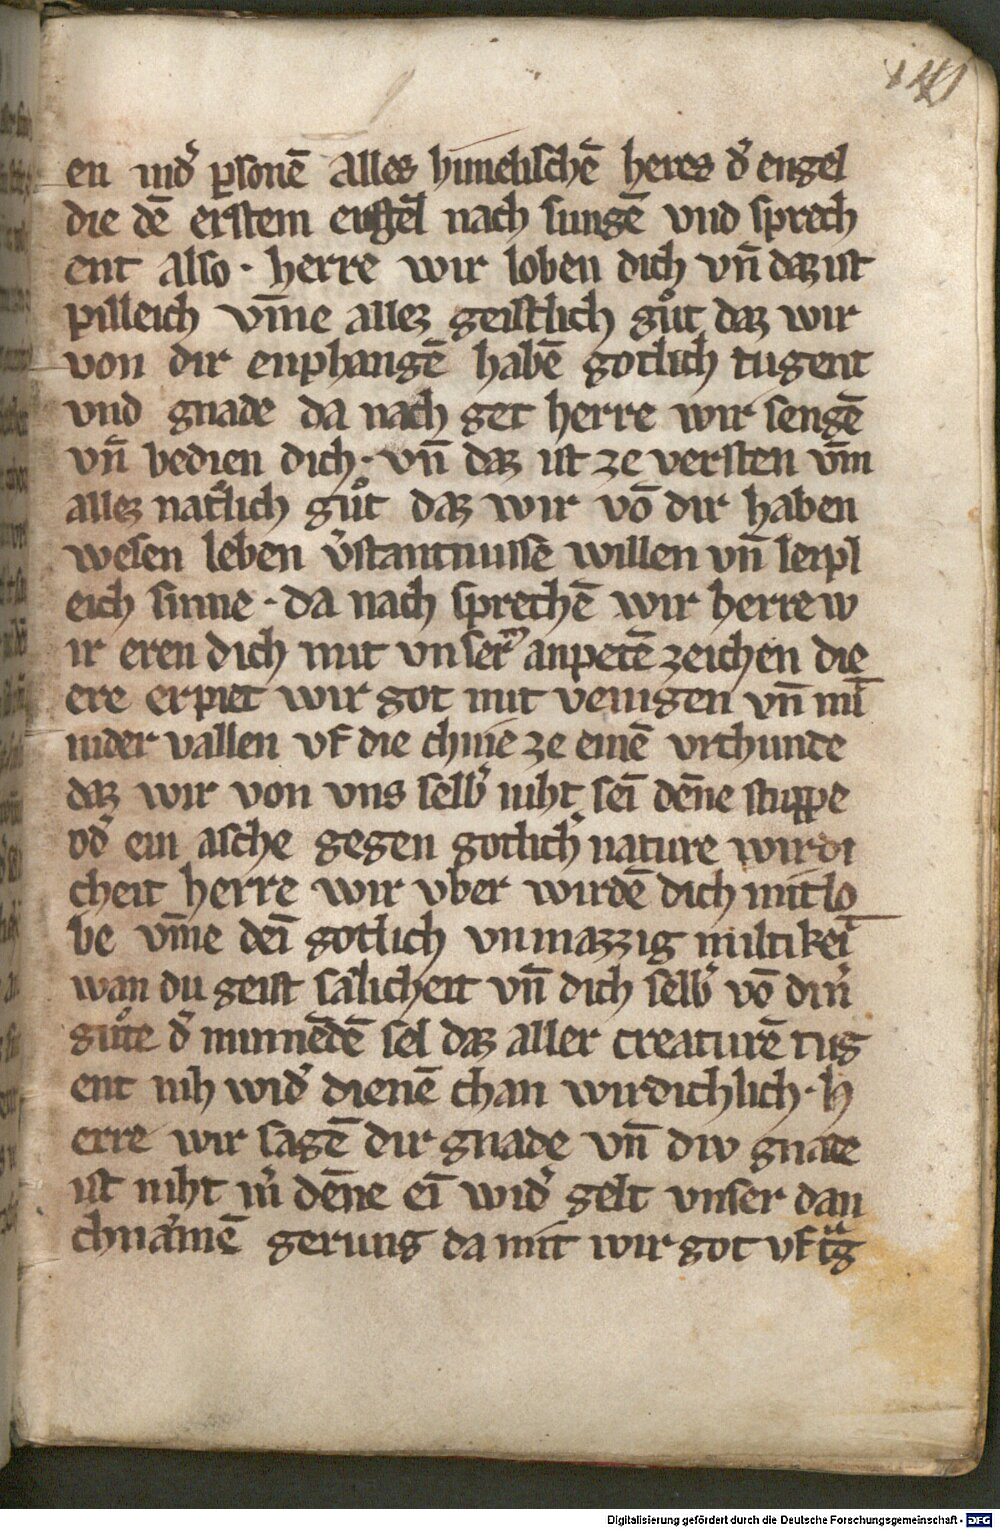 140
en ind᷑ ꝑsonē alles himelischē heres d᷑ engel
die dē erstem engel nach sungē vnd sprech
ent also · herre wir loben dich vn̄ daz ist
pilleich vm̄e allez geistlich gůt daz wir
von dir enphangē habē gotlich tugent
vnd gnade da nach get herre wir sengē
vn̄ bedien dich · vn̄ daz ist ze versten vm̄
allez natᷣlich gůt daz wir vō dir haben
wesen leben v᷑stantnussē willen vn̄ leipl
eich sinne · da nach sprechē wir herre w
ir eren dich mit vnserm anpetē zeichen die
ere erpiet wir got mit venigen vn̄ mī
nider vallen vf die chnie ze einē vrchunde
daz wir von vns selb᷑ niht seī dēne stuppe
od᷑ ein asche gegen gotlich᷑ nature wirdi
cheit herre wir vber wirdē dich mit lo
be vm̄e deī gotlich vnmazzig miltikeit
wan du geist sälicheit vn̄ dich selb᷑ vō din᷑
gůte d᷑ minnēdē sel daz aller creaturē tug
ent nih wid᷑ dienē chan wirdichlich · h
erre wir sagē dir gnade vn̄ diw gnade
ist niht in᷑ dēne eī wid᷑ gelt vnser dan
chnämē gerung da mit wir got vf
Digitalisierung gefördert durch die Deutsche Forschungsgemeinschaft - DFG